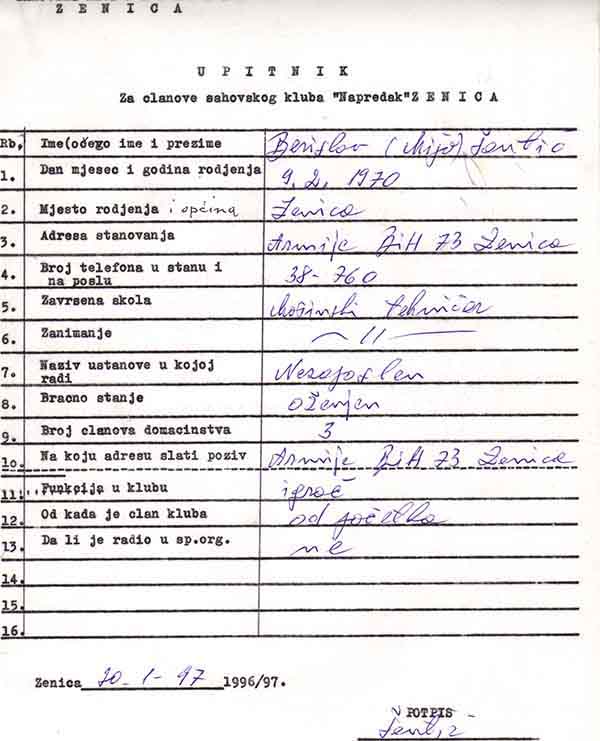 Z E N I C A
U P I T N I K
Za clanove sahovskog kluba "Napredak" Z E N I C A
Rb. Ime(očego ime i prezime Berislav (Mijo) Šantić
1. Dan mjesec i godina rodjenja 9. 2. 1970
2. Mjesto rodjenja i općina Zenica
3. Adresa stanovanja Armije BiH 73 Zenica
4. Broj telefona u stanu i
na poslu 38-760
5. Zavrsena skola Mašinski tehničar
6. Zanimanje — 11 —
7. Naziv ustanove u kojoj
radi Nezaposlen
8. Bracno stanje oženjen
9. Broj clanova domacinstva 3
10. Na koju adresu slati poziv Armije BiH 73 Zenica
11. Funkcija u klubu igrač
12. Od kada je clan kluba od početka
13. Da li je radio u sp.org. ne
14.
15.
16.
Zenica 20-1-97 1996/97.
POTPIS